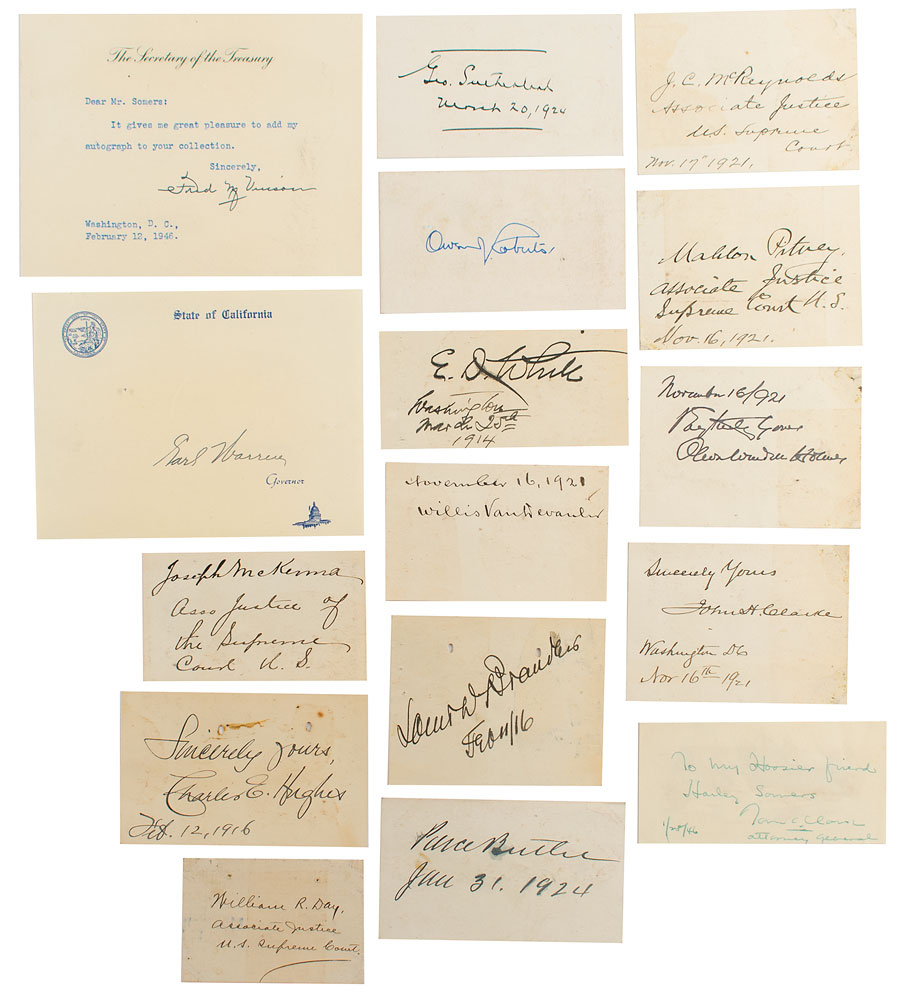 The Secretary of the Treasury
Dear Mr. Somers:
It gives me great pleasure to add my
autograph to your collection.
Sincerely,
Fred M Vinson
Washington, D. C.,
February 12, 1946.
State of California
Earl Warren
Governor
Joseph McKenna
Asso Justice of
the Supreme
Court U. S.
Sincerely yours,
Charles E. Hughes
Feb. 12, 1916
William R. Day,
Associate Justice
U.S. Supreme Court.
Geo. Sutherland
March 20, 1924
Owen J Roberts
E. D. White
Washington
March 25th
1914
November 16, 1921
Willis Van Devanter
Louis D. Brandeis
Feb 11/16
Pierce Butler
Jan 31. 1924
J. C. McReynolds
Associate Justice
U.S. Supreme
Court.
Nov. 17" 1921.
Mahlon Pitney,
Associate Justice
Supreme Court U. S.
Nov. 16, 1921.
November 16/921
Very truly yours
Oliver Wendell Holmes
Sincerely Yours
John H. Clarke
Washington DC
Nov 16th 1921
To my Hoosier friend
Harley Somers
Tom C. Clark
1/28/46
attorney General